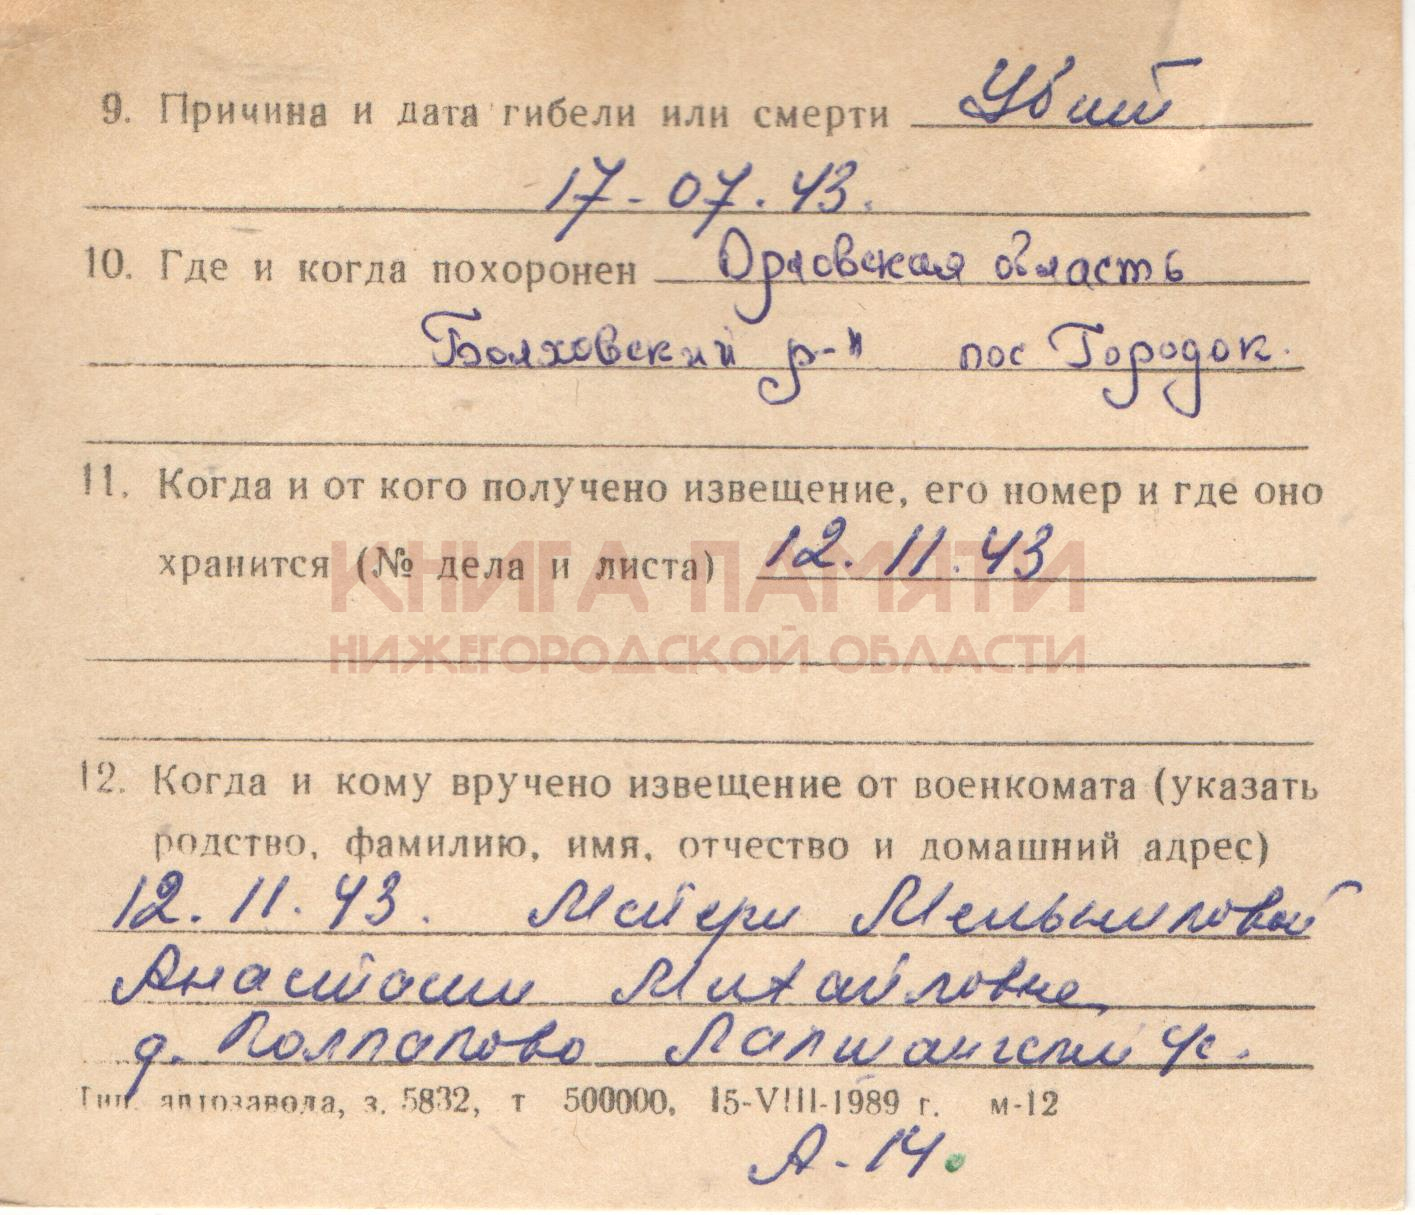 9. Причина и дата гибели или смерти Убит
17-07.43.
10. Где и когда похоронен Орловская область
Болховский р-н пос Городок.
11. Когда и от кого получено извещение, его номер и где оно
хранится (№ дела и листа) 12.11.43
КНИГА ПАМЯТИ
НИЖЕГОРОДСКОЙ ОБЛАСТИ
12. Когда и кому вручено извещение от военкомата (указать
родство, фамилию, имя, отчество и домашний адрес)
12.11.43. Матери Мельниковой
Анастасии Михайловне
д. Колпаково Лапшангский
Тип. автозавода, з. 5832, т 500000, 15-VIII-1989 г. м-12
А-14.